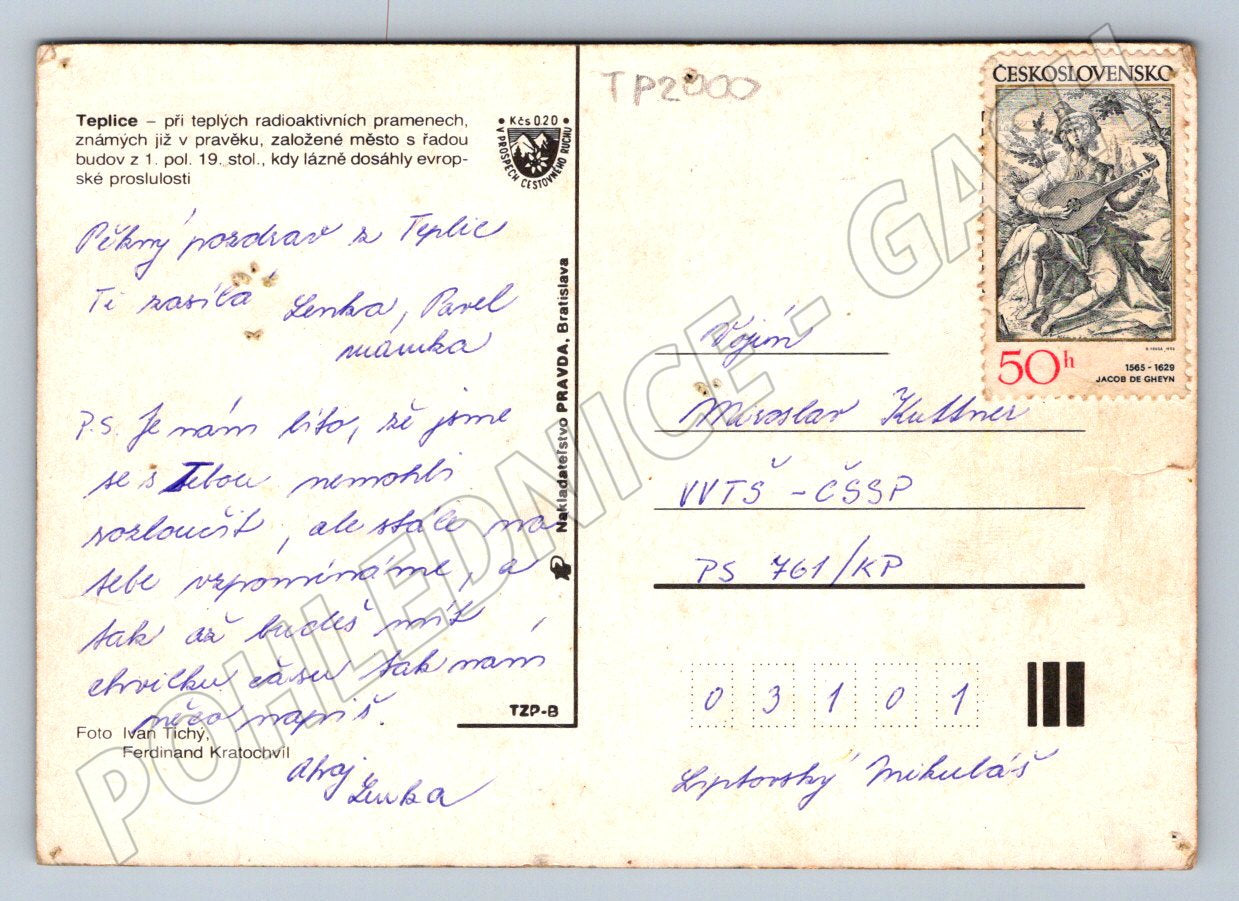 Teplice – při teplých radioaktivních pramenech,
známých již v pravěku, založené město s řadou
budov z 1. pol. 19. stol., kdy lázně dosáhly evrop-
ské proslulosti
• Kčs 0.20 •
V PROSPĚCH CESTOVNÉHO RUCHU
Pěkný pozdrav z Teplic
Ti zasílá Lenka, Pavel
mamka
P.S. Je nám líto, že jsme
se s Tebou nemohli
rozloučit, ale stále na
tebe vzpomínáme, a
tak až budeš mít
chvilku času tak nám
něco napiš.
Ahoj
Lenka
Foto Ivan Tichý,
Ferdinand Kratochvíl
TZP-B
Nakladateľstvo PRAVDA, Bratislava
TP2000
ČESKOSLOVENSKO
50h
1565 - 1629
JACOB DE GHEYN
Vojín
Miroslav Kuttner
VVTŠ - ČSSP
PS 761/KP
03101
Liptovský Mikuláš
POHLEDNICE - GASH